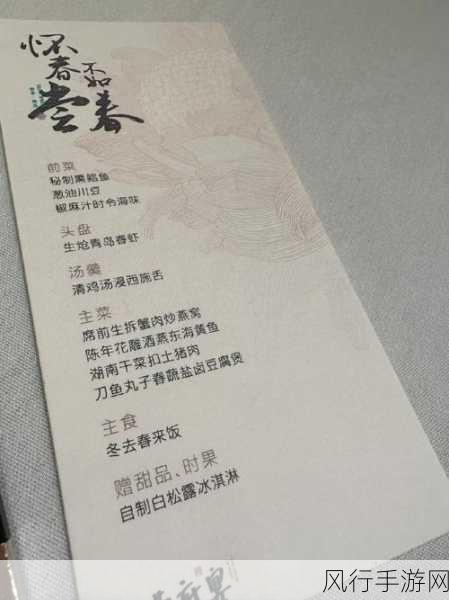 怀春不如尝春
前菜
秘制熏鲳鱼
葱油川豆
椒麻汁时令海味
头盘
生炝青岛春虾
汤羹
清鸡汤浸西施舌
主菜
席前生拆蟹肉炒燕窝
陈年花雕酒蒸东海黄鱼
湖南干菜扣土猪肉
刀鱼丸子春蔬盐卤豆腐煲
主食
冬去春来饭
赠甜品、时果
自制白松露冰淇淋
风行手游网